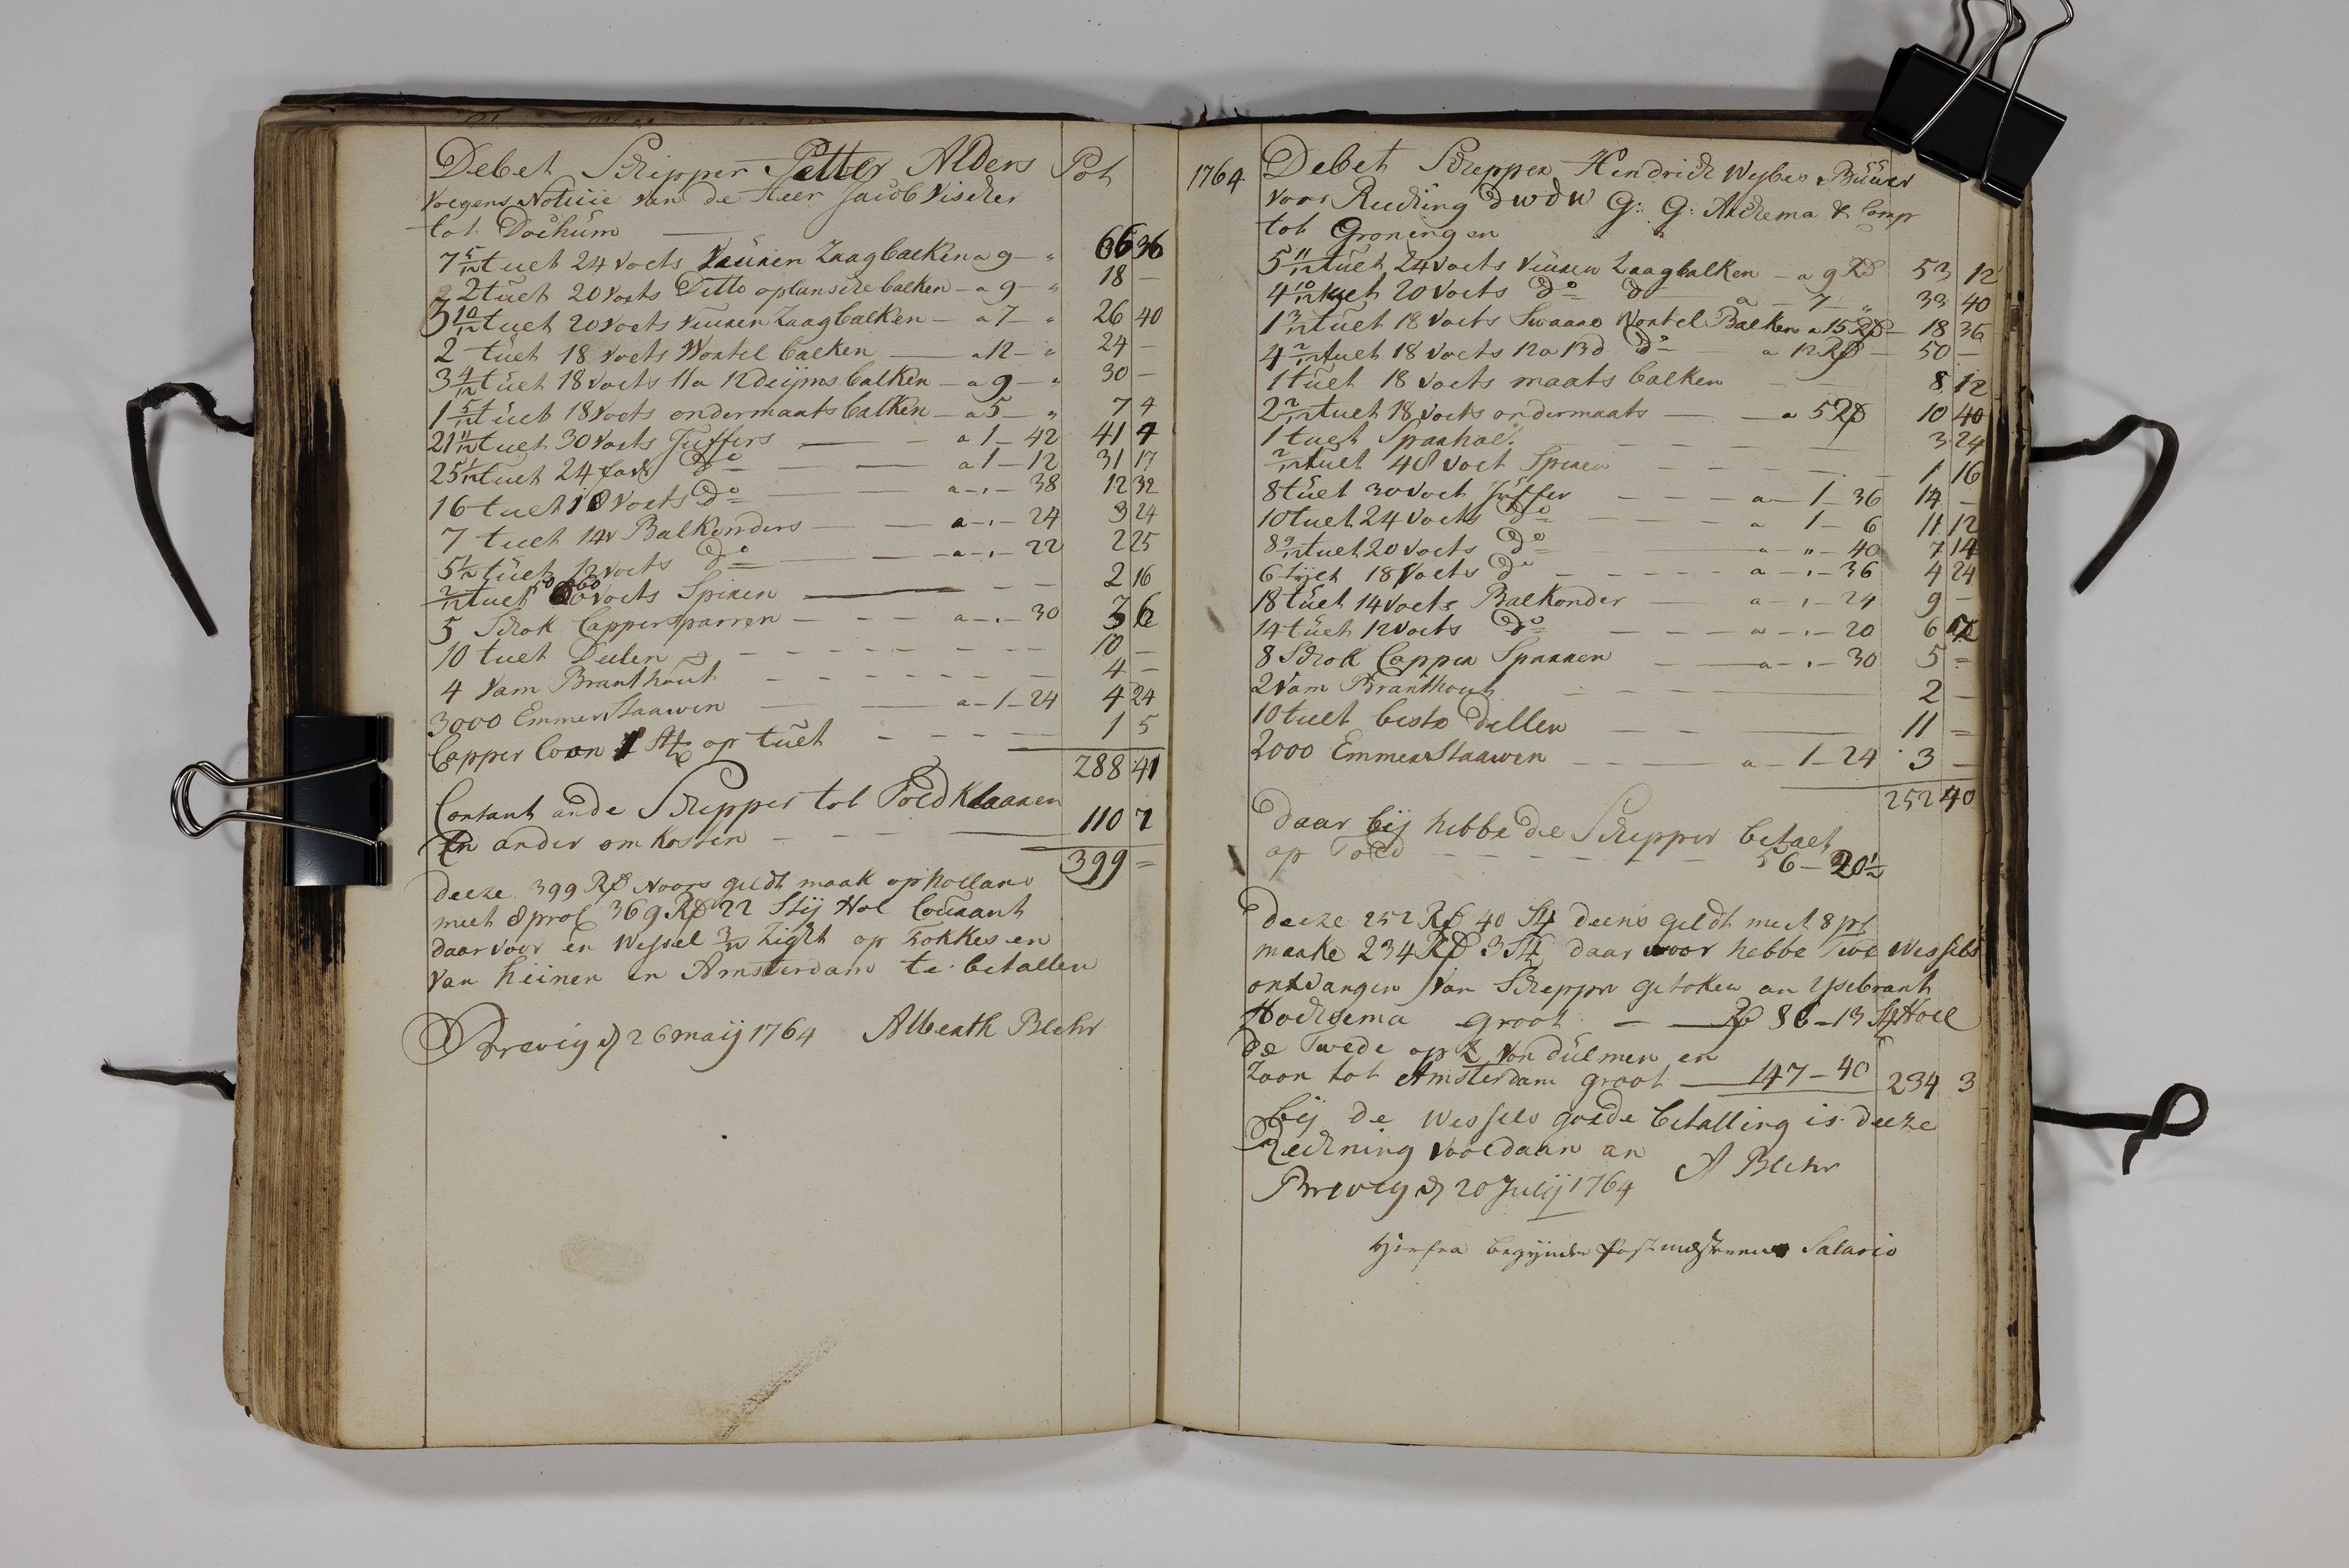 Debet Schipper Petter Alders Pot
Volgens Notiiie van de Heer Jacob Vischer
tot Dochum
7 5/12 tuet 24 voets Vuuren Zaagbalken a 9 — " 66 36
2 tuet 20 voets Ditto oplansche balken — a 9 — " 18 —
3 10/12 tuet 20 voets vuuren Zaagbalken — a 7 — " 26 40
2 tuet 18 voets Wortel balken — a 12 — " 24 —
3 4/12 tuet 18 voets 11 a 12 deijms balken — a 9 — " 30 —
1 5/12 tuet 18 voets ondermaats balken — a 5 — " 7 4
21 11/12 tuet 30 voets Juffers — a 1 — 42 41 4
25 1/12 tuet 24 do — a 1 — 12 31 17
16 tuet 18 voets do — a — " — 38 12 32
7 tuet 14 v Balkonders — a — " — 24 3 24
5 1/2 tuet 12 voets do — a — " — 22 2 25
2/12 tuet 50 a 60 voets Spieren — 2 16
5 Schok Capper sparren — a — " — 30 3 6
10 tuet Deelen — 10 —
4 Vam Branthout — 4 —
3000 Emmer Staawen — a — 1 — 24 4 24
Capper loon 1 St op tuet — 1 5
288 41
Contant an de Schepper tot Toldklaaren
En ander omkosten — 110 7
399 =
deeze 399 Rd Noors geldt maak op hollans
meet 8 proc 369 Rd 22 Stij Hol Courant
daar voor en Wessel 3/m Zight op Fokkes en
Van heinen in Amsterdam te betallen
Brevig d 26 maij 1764 Alberth Blehr
1764
Debet Schepper Hendrich Wybes
voor Rechning d w d W G: G: & Comp
tot Groningen
5 11/12 tuet 24 voets vuuren Zaagbalken — a 9 Rd 53 12
4 10/12 tuet 20 voets do do a — 7 — " 33 40
1 3/12 tuet 18 voets Swaare Wortel Balken a 15 Rd 18 36
4 2/12 tuet 18 voets 12 a 13 d do — a 12 Rd — 50 —
1 tuet 18 voets maats balken — 8 12
2 2/12 tuet 18 voets ondermaats — a 5 Rd 10 40
1 tuet Spanholt — 3 24
2/12 tuet 40 voet Spieren — 1 16
8 tuet 30 voet Juffer — a — 1 — 36 14 —
10 tuet 24 voets do — a 1 — 6 11 12
8 9/12 tuet 20 voets do — a — " — 40 7 14
6 tyet 18 voets do — a — " — 36 4 24
18 tuet 14 voets Balkonder — a — " — 24 9 —
14 tuet 12 voets do — a — " — 20 6
8 Schok Capper Sparren — a — " — 30 5 =
2 Vam Branthout — 2 —
10 tuet beste dellen — 11 =
2000 Emmer Staawen — a — 1 — 24 3 —
252 40
daar bij hebbe de Schepper betaelt
op Told — 56 — 20 1/2
Deeze 252 Rd 40 St deens geldt meet 8 pc
maake 234 Rd 3 St daar voor hebbe twe Wessels
ontvangen van Schepper getoken an Ysebrant
Hoeksema groot — Rd 86 — 13 St Hoel
de Twede op Z Von dulmen en
Zoon tot Amsterdam groot — 147 — 40 234 3
bij de Wessels goede betalling is deeze
Rechning Vooldaan an
Brevig d 20 Julij 1764 A Blehr
Hierfra begynder Postmesterens Salario